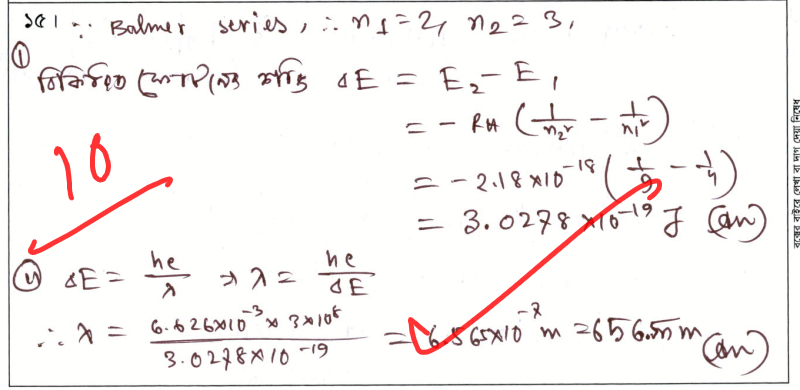 ১৫। ∵ Balmer series, ∴ n₁ = 2, n₂ = 3,
(i) বিকিরিত ফোটনের শক্তি ΔE = E₂ − E₁
= − RH (1/n₂² − 1/n₁²)
= − 2.18×10⁻¹⁸ (1/9 − 1/4)
= 3.0278×10⁻¹⁹ J (An)
10
(ii) ΔE = hc/λ → λ = hc/ΔE
∴ λ = 6.626×10⁻³ × 3×10⁸ / 3.0278×10⁻¹⁹ = 6.565×10⁻⁷ m = 656.5nm (An)
বক্সের বাইরে লেখা বা দাগ দেয়া নিষেধ